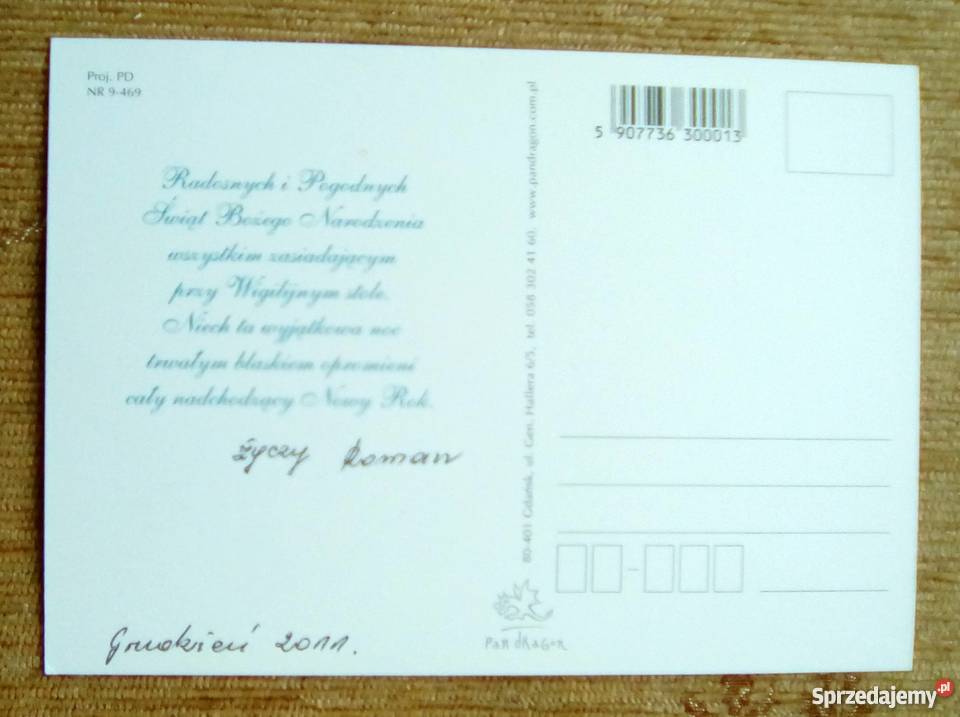 Proj. PD
NR 9-469
Radosnych i Pogodnych
Świąt Bożego Narodzenia
wszystkim zasiadającym
przy Wigilijnym stole.
Niech ta wyjątkowa noc
trwałym blaskiem opromieni
cały nadchodzący Nowy Rok.
życzy Roman
Grudzień 2011.
80-401 Gdańsk, ul. Gen. Hallera 6/5, tel. 058 302 41 60, www.pandragon.com.pl
PAN dRAGON
5 907736 300013
Sprzedajemy.pl